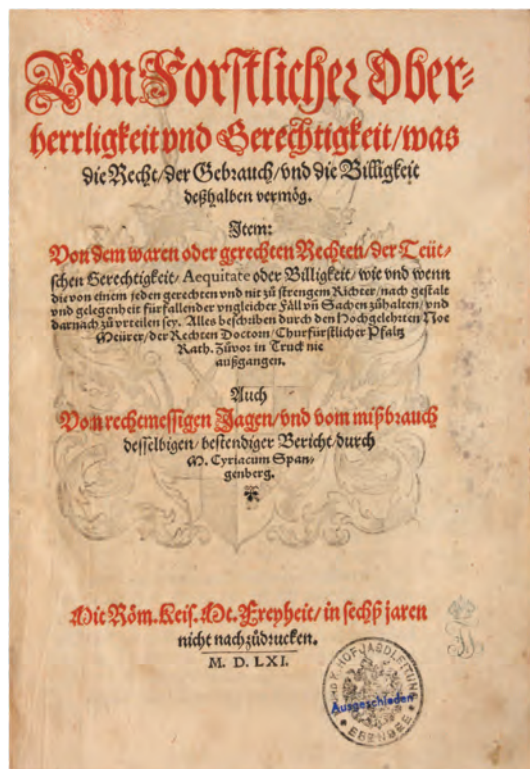 Von Forstlicher Ober-
herrligkeit vnd Gerechtigkeit/ was
die Recht/ der Gebrauch/ vnd die Billigkeit
deßhalben vermög.
Item:
Von dem waren oder gerechten Rechten/ der Teüt/
schen Gerechtigkeit/ Aequitate oder Billigkeit/ wie vnd wenn
die von einem jeden gerechten vnd nit zů strengem Richter/ nach gestalt
vnd gelegenheit fürfallender vngleicher Fäll vñ Sachen zůhalten/ vnd
darnach zů vrteilen sey. Alles beschriben durch den Hochgelehrten Noe
Meürer/ der Rechten Doctorn/ Churfürstlicher Pfaltz
Rath. Zůuor in Truck nie
außgangen.
Auch
Vom rechtmessigen Jagen/ vnd vom mißbrauch
desselbigen/ bestendiger Bericht/ durch
M. Cyriacum Span-
genberg.
Mit Röm. Keis. Mt. Freyheit/ in sechß jaren
nicht nachzůdrucken.
M. D. LXI.
UND K. HOFJAGDLEITUNG
Ausgeschieden
* EBENSEE *